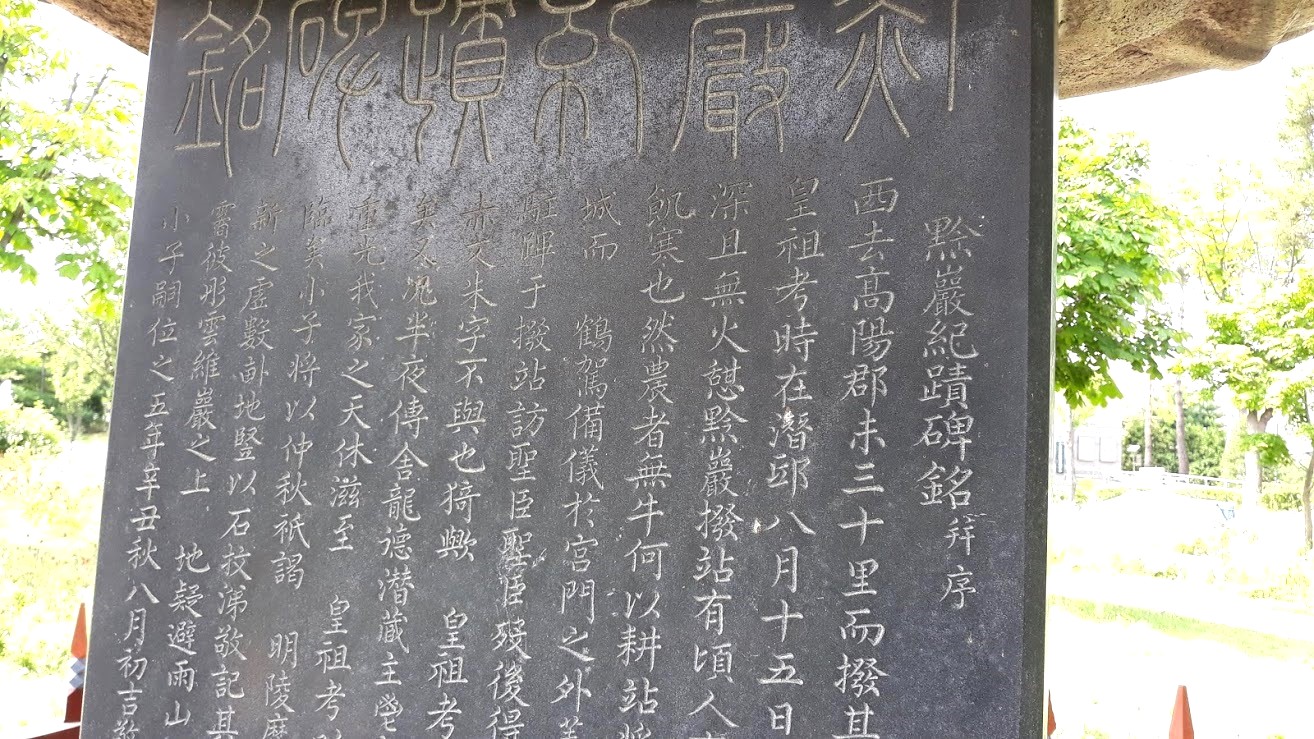 巖紀蹟碑銘
黔巖紀蹟碑銘 幷序
西去高陽郡未三十里而撥其
皇祖考時在潛邸八月十五日
深且無火憇黔巖撥站有頃人
飢寒也然農者無牛何以耕站將
城而 鶴駕備儀於宮門之外
駐蹕于撥站訪聖臣聖臣殘後得
赤文朱字不與也猗歟 皇祖考
矣半夜傳舍龍德潛蔵主
重光我家之天休滋至 皇祖考
臨矣小子將以仲秋祇謁 明陵
新之虛數畝地豎以石抆涕敬記其
霤彼彤雲維巖之上 地疑避雨山
小子嗣位之五年辛丑秋八月初吉敬